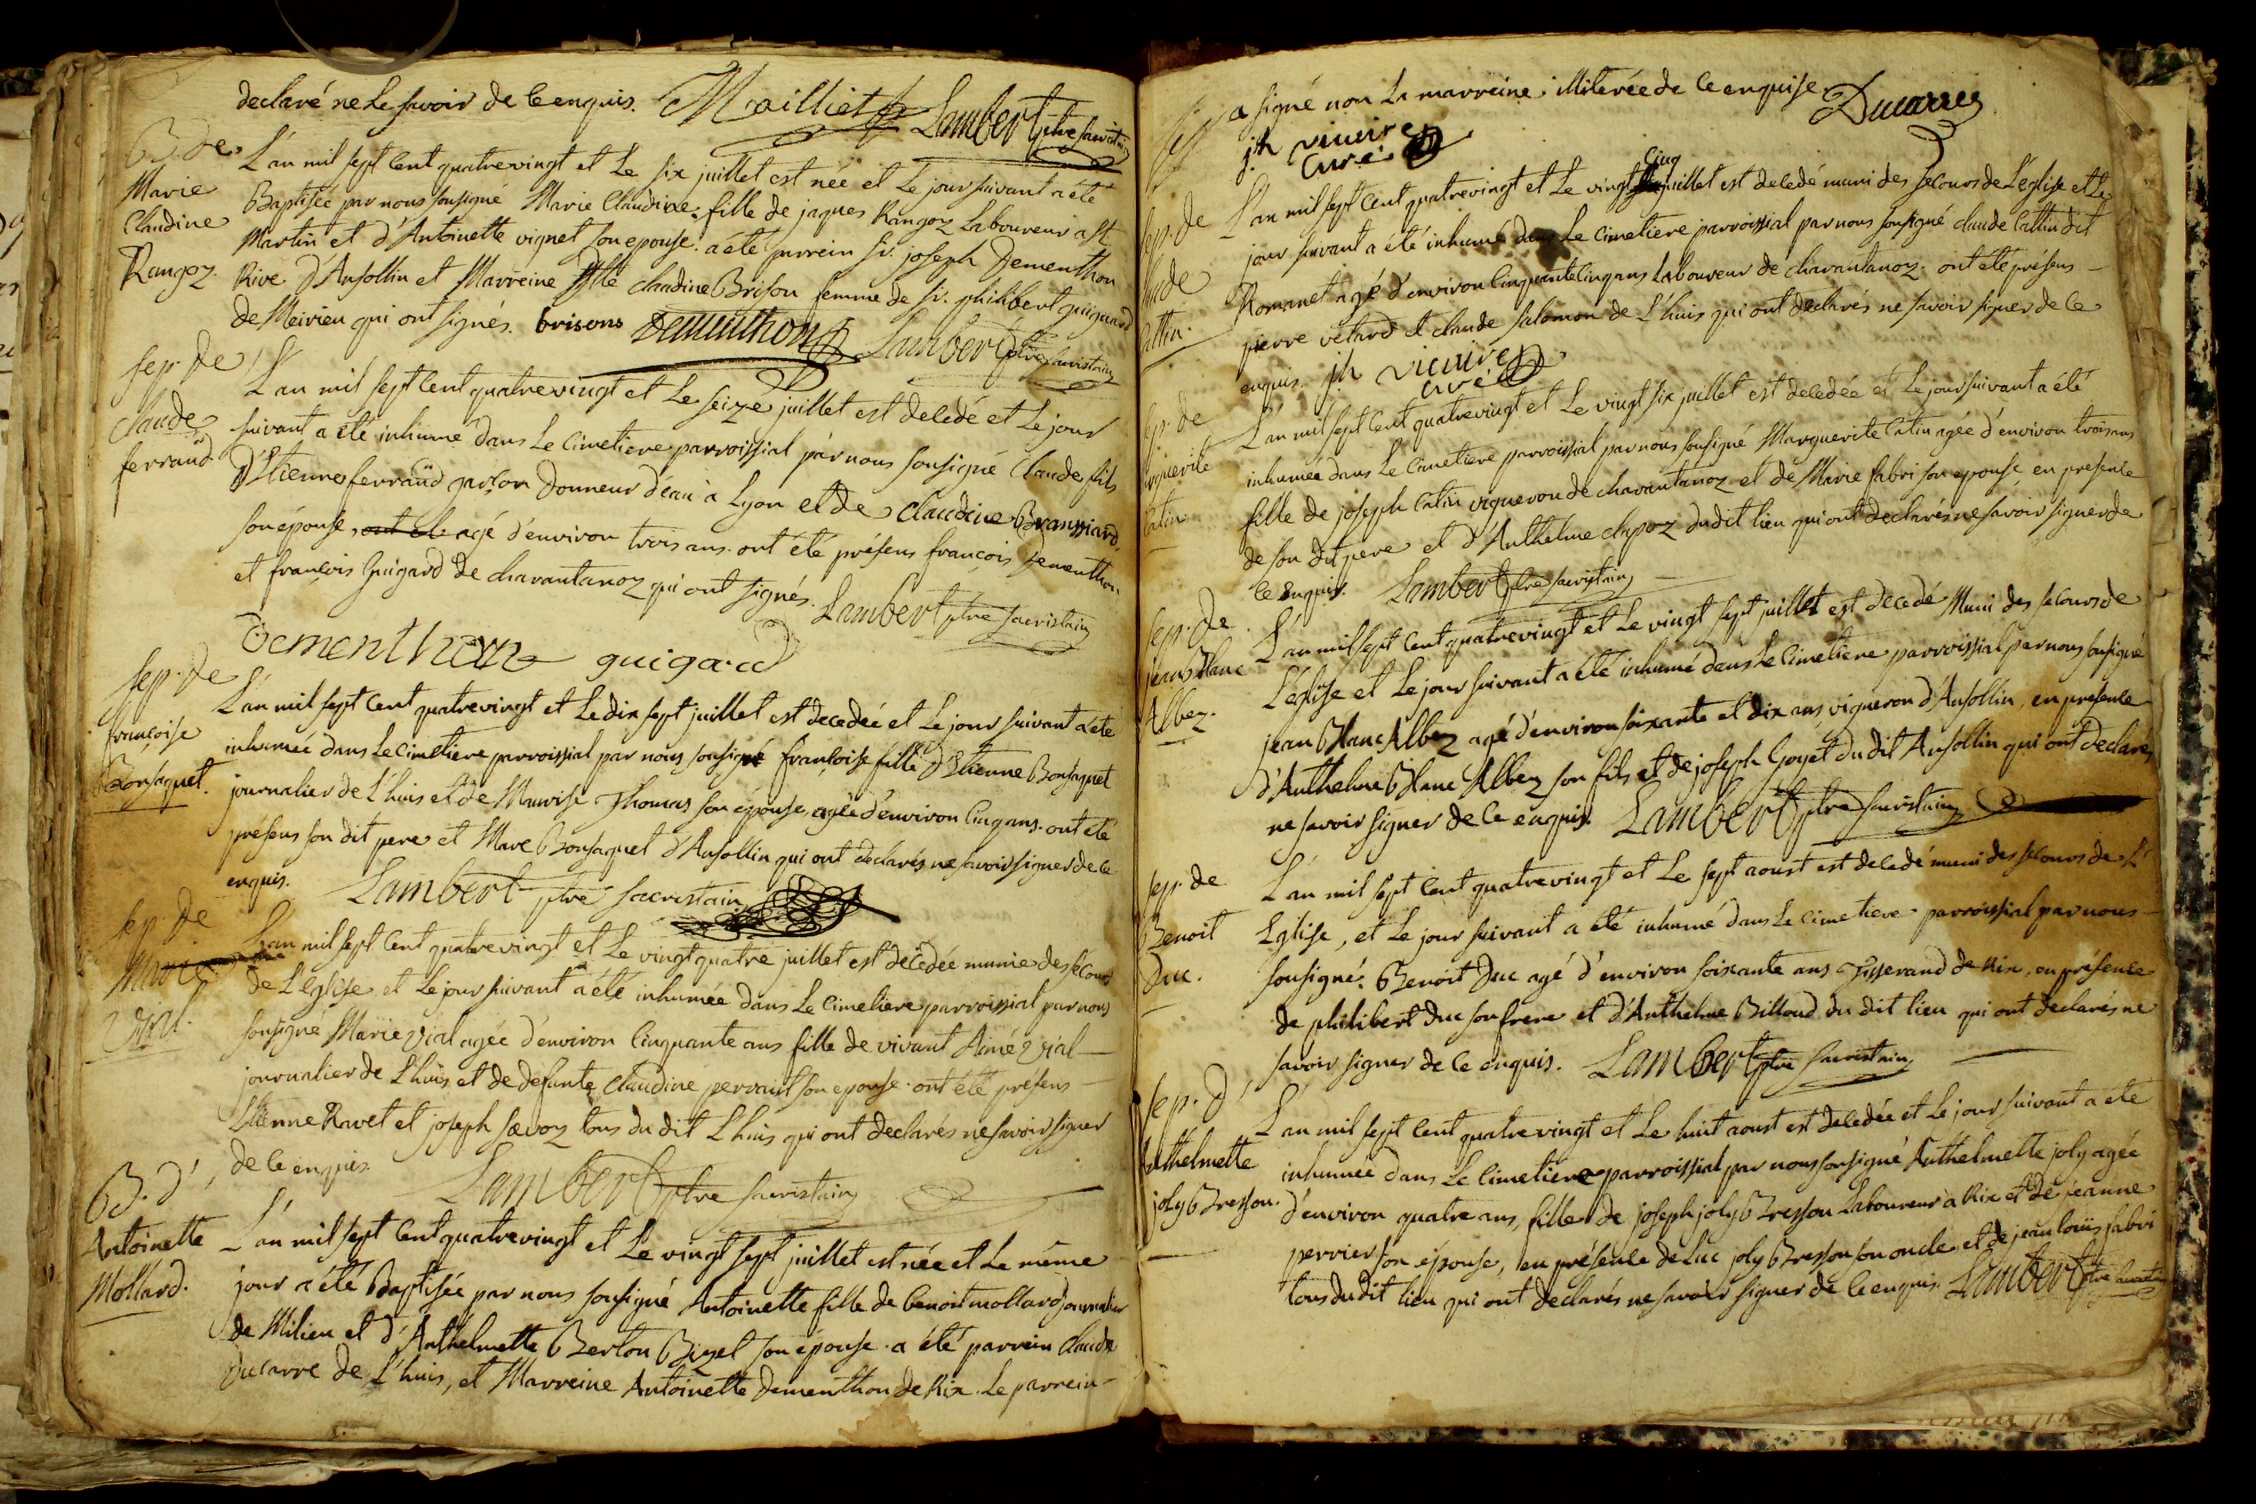 declaré ne le savoir de ce enquis. Mailliet Lambert ptre sacristain
B. de
Marie
Claudine
Rangoz.
L'an mil sept cent quatrevingt et le six juillet est née et le jour suivant a été
Baptisée par nous sousigné Marie Claudine fille de jaques Rangoz Laboureur a St.
Martin et d'Antoinette vignet son epouse. a été parrein Sr. joseph Dementhon
Rive d'Ansollin et Marreine Claudine Brison femme de Sr. philibert guiguard
de Meirieu qui ont signés. brisons Dementhon Lambert ptre sacristain
sep. de
Claude
ferraud
L'an mil sept cent quatrevingt et le seize juillet est decedé et le jour
suivant a été inhumé dans le cimetiere parroissial par nous sousigné Claude fils
d'Etienne ferraud garçon Donneur d'eau à Lyon et de Claudine Branssiard
son épouse, agé d'environ trois ans. ont été présens françois Dementhon
et françois Guigard de chavantanoz qui ont signés. Lambert ptre sacristain
Dementhon guigard
sep. de
françoise
Bonsaquet.
L'an mil sept cent quatrevingt et le dix sept juillet est decedée et le jour suivant a été
inhumée dans le cimetiere parroissial par nous sousigné françoise fille d'Etienne Bonsaquet
journalier de L'huis et de Maurise Thomas son épouse, agée d'environ cinq ans. ont été
présens son dit pere et Marc Bonsaquet d'Ansollin qui ont declarés ne savoir signer de ce
enquis. Lambert ptre sacristain
sep. de
Marie
Vial.
L'an mil sept cent quatrevingt et le vingt quatre juillet est decedée munie des secours
de L'église et le jour suivant a été inhumée dans le cimetiere parroissial par nous
sousigné Marie Vial agée d'environ cinquante ans fille de vivant Aimé Vial
journalier de L'huis et de defunte Claudine pervant son epouse. ont été présens
Etienne Ravet et joseph savoz tous du dit L'huis qui ont declarés ne savoir signer
de ce enquis. Lambert ptre sacristain
B. d'
Antoinette
Mollard.
L'an mil sept cent quatrevingt et le vingt sept juillet est née et le même
jour a été Baptisée par nous sousigné Antoinette fille de benoit mollard journalier
de Milieu et d'Anthelmette Berlon Bizet son épouse. a été parrein Claude
Ducarre de L'huis, et Marreine Antoinette Dementhon de Rix. Le parrein
a signé non la marreine illiterée de ce enquise. Ducarre
jh vicaire
curé
sep. de
L'an mil sept cent quatrevingt et le vingt cinq juillet est decedé muni des secours de L'église et le
jour suivant a été inhumé dans le cimetiere parroissial par nous sousigné claude Cattin dit
Romanet agé d'environ cinquante cinq ans Laboureur de chavantanoz. ont été présens
pierre vetard et claude salomon de L'huis qui ont declarés ne savoir signer de ce
enquis. jh vicaire
curé
sep. de
L'an mil sept cent quatrevingt et le vingt six juillet est decedée et le jour suivant a été
inhumée dans le cimetiere parroissial par nous sousigné Marguerite Catin agée d'environ trois ans
fille de joseph Catin vigneron de chavantanoz et de Marie fabri son epouse, en presence
de son dit pere et d'Anthelme chapoz du dit lieu qui ont declarés ne savoir signer de
ce enquis. Lambert ptre sacristain
sep. de
jean Blanc
Albez.
L'an mil sept cent quatrevingt et le vingt sept juillet est decedé Muni des secours de
L'église et le jour suivant a été inhumé dans le cimetiere parroissial par nous sousigné
jean Blanc Albez agé d'environ soixante et dix ans vigneron d'Ansollin, en presence
d'Anthelme Blanc Albez son fils et de joseph Goyet du dit Ansollin qui ont declarés
ne savoir signer de ce enquis. Lambert ptre sacristain
sep. de
Benoit
Duc.
L'an mil sept cent quatrevingt et le sept aoust est decedé muni des secours de L'
Eglise, et le jour suivant a été inhumé dans le cimetiere parroissial par nous
sousigné. Benoit Duc agé d'environ soixante ans Tisserand de Rix, en présence
de philibert Duc son frere et d'Anthelme Billoud du dit lieu qui ont declarés ne
savoir signer de ce enquis. Lambert ptre sacristain
sep. d'
Anthelmette
joly Bresson.
L'an mil sept cent quatrevingt et le huit aoust est decedée et le jour suivant a été
inhumée dans le cimetiere parroissial par nous sousigné Anthelmette joly agée
d'environ quatre ans, fille de joseph joly Bresson Laboureur à Rix et de jeanne
perrier son épouse, en présence de Luc joly Bresson son oncle et de jean louis fabri
tous du dit lieu qui ont declarés ne savoir signer de ce enquis. Lambert ptre sacristain